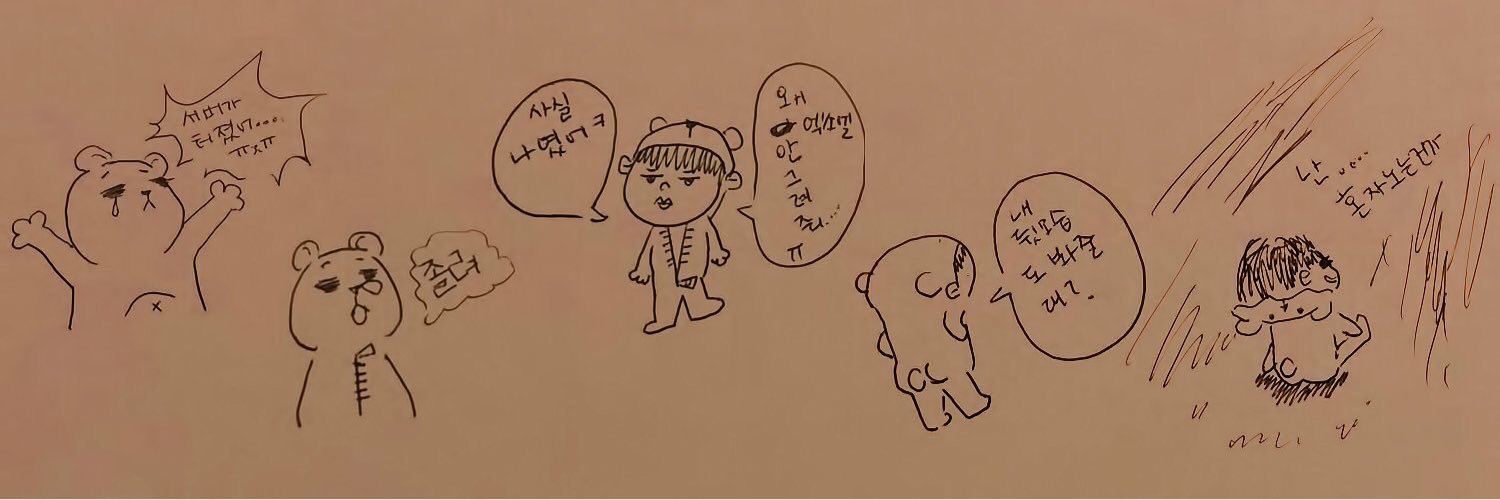 서버가
터졌어....
ㅠㅅㅠ
졸려
사실
나였어ㅋ
왜
엑소멜
안
그려
줘....
ㅠ
내
뒷모습
도 봐줄
래?
난.....
혼자노는건가